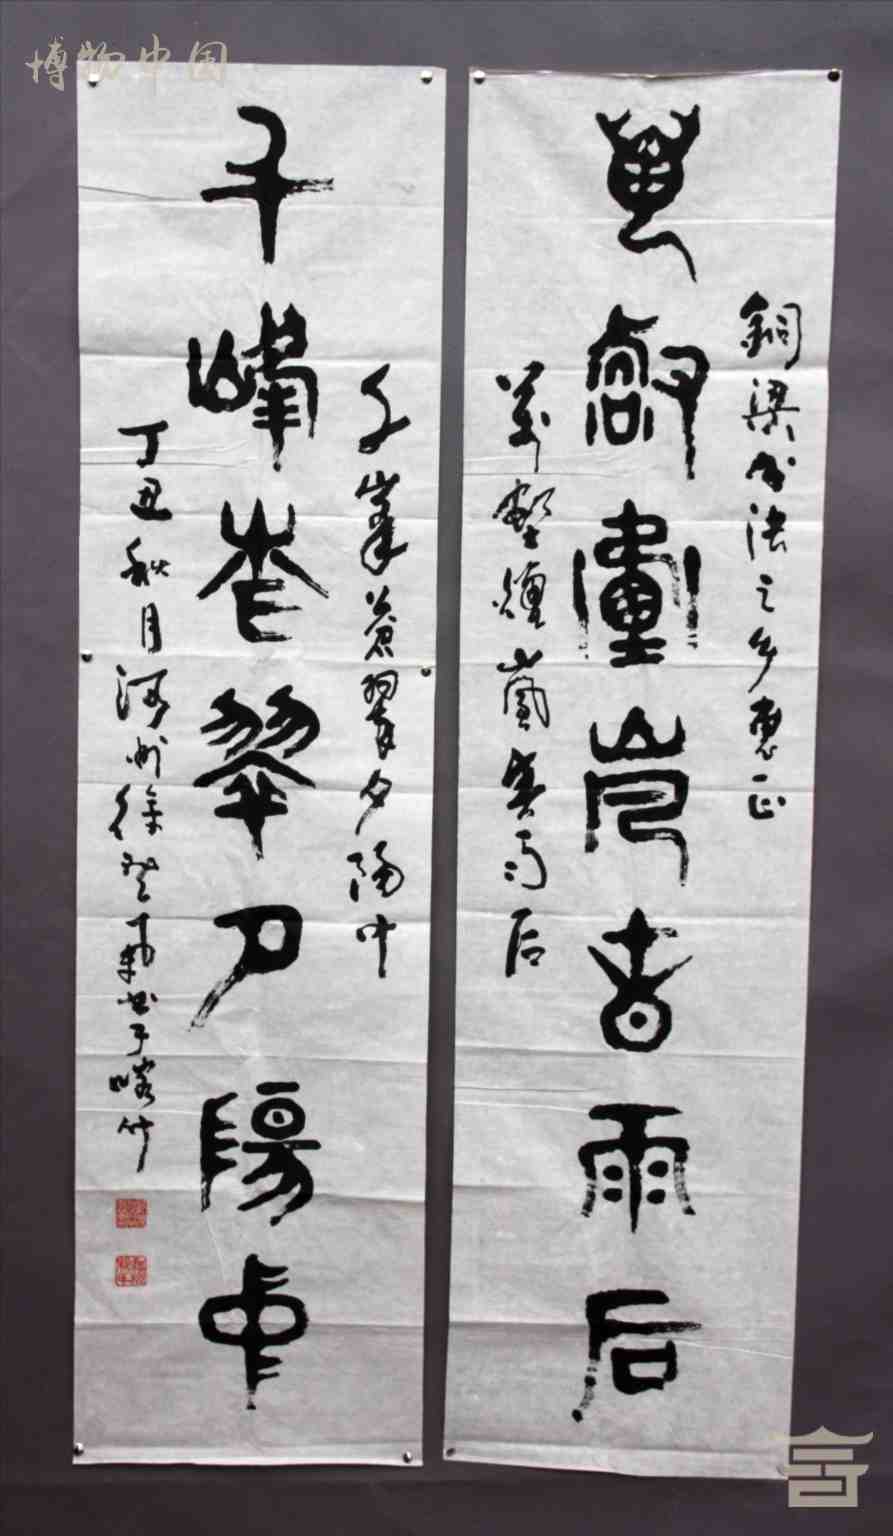 博物中国
銅梁书法之乡惠正
萬壑煙嵐春雨后
萬壑煙嵐春雨后
千峯蒼翠夕陽中
千峰蒼翠夕陽中
丁丑秋月河州徐书于竹